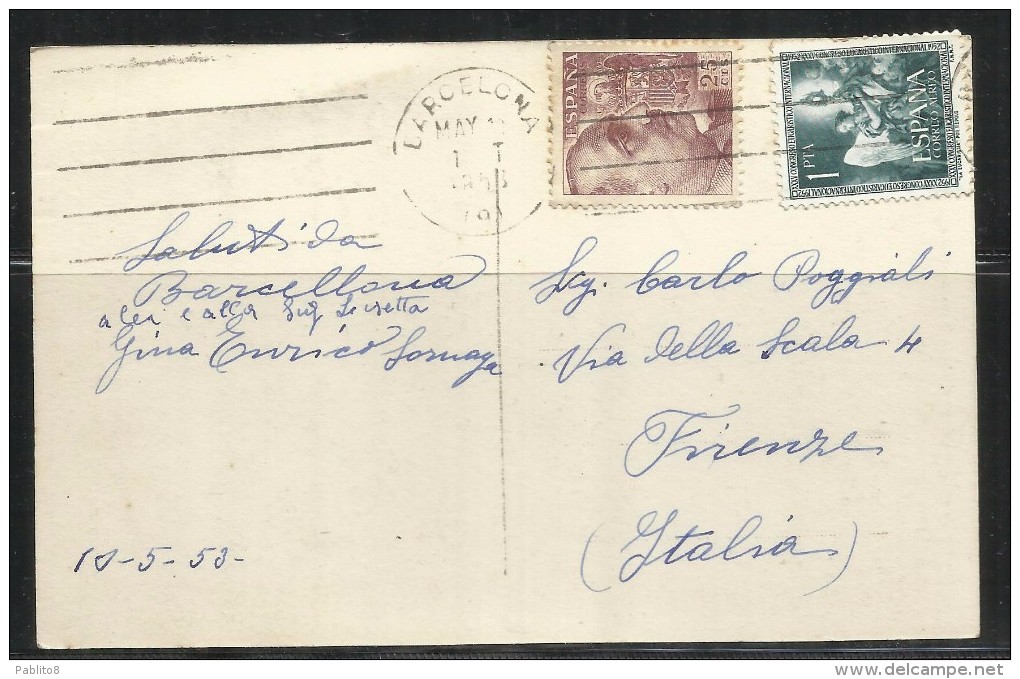 BARCELONA
MAY
ESPAÑA
25
CTS
ESPAÑA
CORREO AEREO
1 PTA
XXXV CONGRESO EUCARISTICO INTERNACIONAL 1952
Saluti da
Barcellona
a lei e alla Sig
Gina Enrico
10-5-53-
Sig. Carlo Poggiali
Via della Scala 4
Firenze
(Italia)
Pablito8
delcampe.net